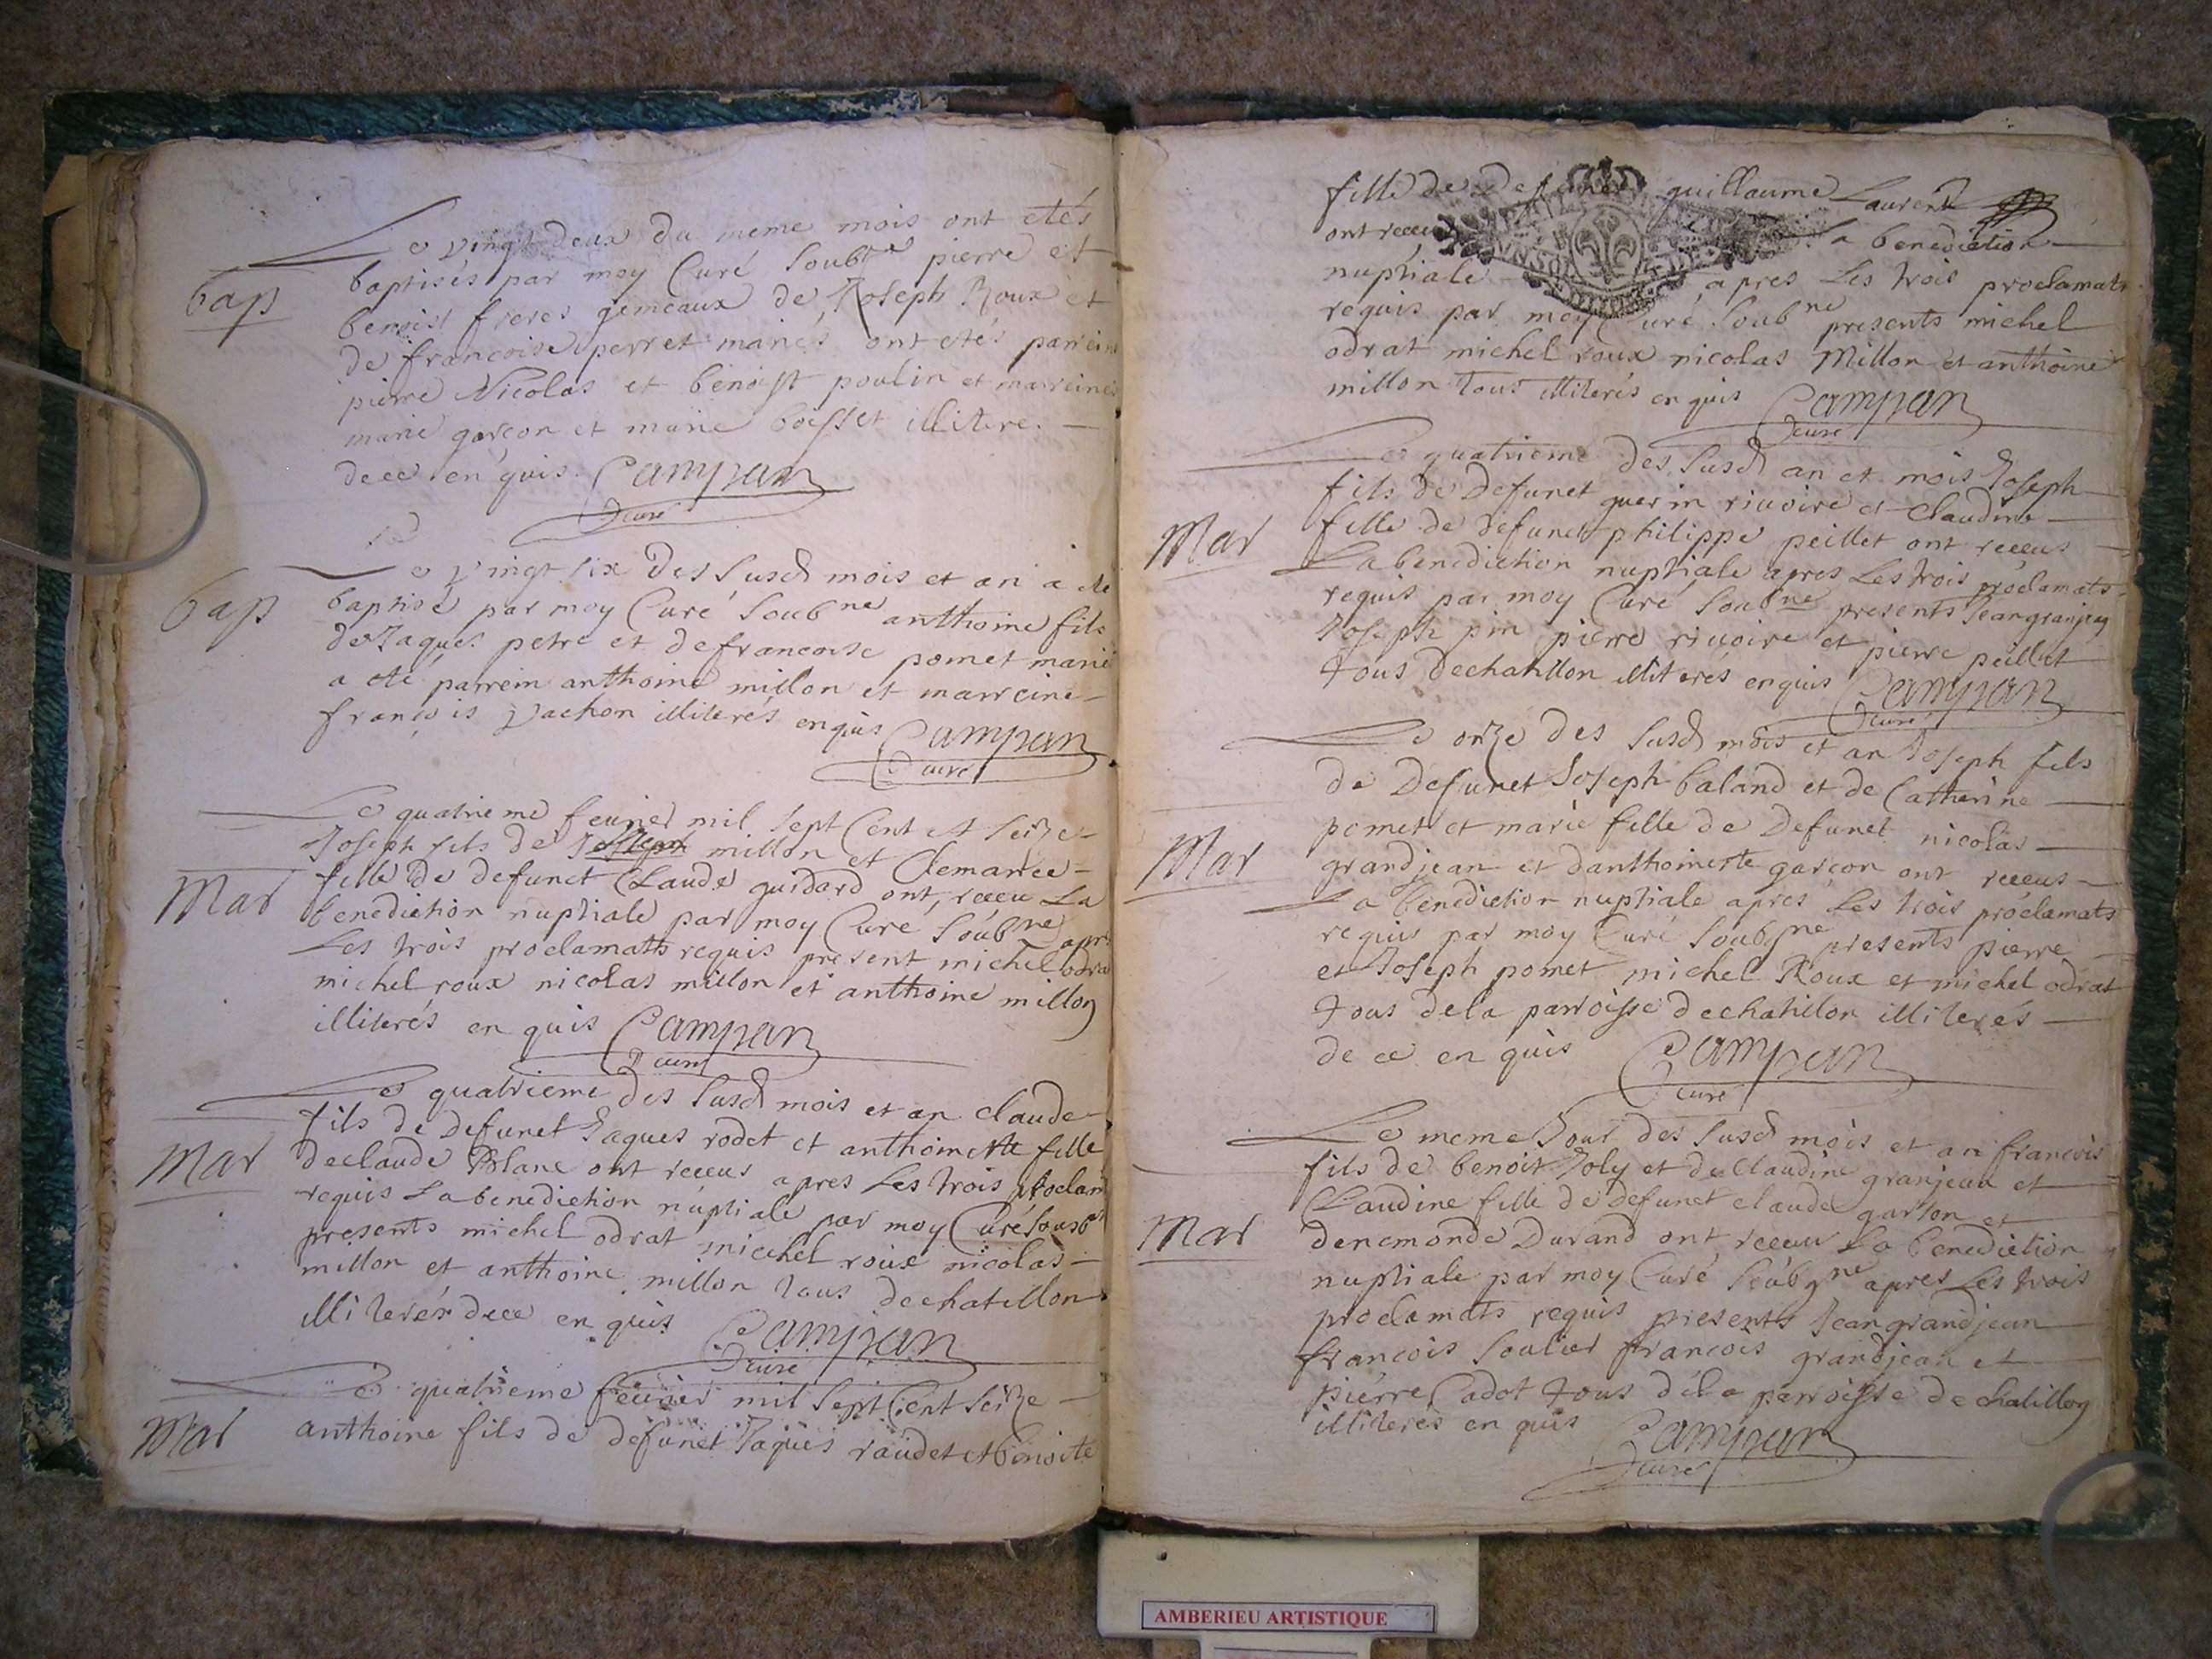 Le vingt deux du meme mois ont etés
bap
baptisés par moy Curé Soubne pierre et
benoist freres gemeaux de Joseph Roux et
de francoise perret mariés ont etés parrein
pierre Nicolas et benoist poulin et marreines
marie garcon et marie boisset illitere.
de ce en quis. Campan
Curé
Le vingt six des susd mois et an a ete
bap
baptisé par moy Curé Soubne anthoine fils
de Jaques petre et de francoise pomet marié
a oté parrein anthoine millon et marreine
francois vachon illiterés enquis Campan
Curé
Le quatrieme feurier mil sept Cent et seize
Joseph fils de Joseph millon et Clemance
Mar
fille de defunct Claude guidard ont receu La
benediction nuptiale par moy Curé Soubne apres
Les trois proclamats requis present michel odrat
michel roux nicolas millon et anthoine millon
illiterés en quis Campan
Curé
Le quatrieme des susd mois et an claude
fils de defunct Jaques rodet et anthoinette fille
Mar
de claude Blanc ont receus apres Les trois proclam
requis La benediction nuptiale par moy Curé sousbne
presents michel odrat michel roux nicolas
millon et anthoine millon tous de chatillon
illiterés de ce en quis Campan
Curé
Le quatrieme feurier mil sept Cent seize
Mar
anthoine fils de defunct Jaques raudet et benoite
fille de defunct guillaume Laurent
ont receu La benediction
nuptiale apres Les trois proclamats
requis par moy Curé Soubne presents michel
odrat michel roux nicolas Millon et anthoine
millon tous illiterés en quis Campan
Curé
Le quatrieme des susd an et mois Joseph
fils de defunct guerin riuoire et claudine
Mar
fille de defunct philippe peillet ont receus
La benediction nuptiale apres Les trois proclamats
requis par moy Curé Soubne presents Jean granjean
Joseph pin pierre riuoire et pierre peillet
tous de chatillon illiterés enquis Campan
Curé
Le onze des susd mois et an Joseph fils
de defunct Joseph baland et de Catherine
pomet et marie fille de defunct nicolas
Mar
grandjean et d'anthoinette garcon ont receus
La benediction nuptiale apres Les trois proclamats
requis par moy Curé Soubgne presents pierre
et Joseph pomet michel Roux et michel odrat
tous de la parroisse de chatillon illiterés
de ce en quis Campan
Curé
Le meme Jour des susd mois et an francois
fils de benoit Joly et de Claudine granjean et
Claudine fille de defunct claude garson et
Mar
denemonde Durand ont receu La benediction
nuptiale par moy Curé Soubgne apres Les trois
proclamats requis presents Jean grandjean
francois soulier francois grandjean et
pierre Cadot tous de la parroisse de chatillon
illiteres en quis Campan
Curé
AMBERIEU ARTISTIQUE